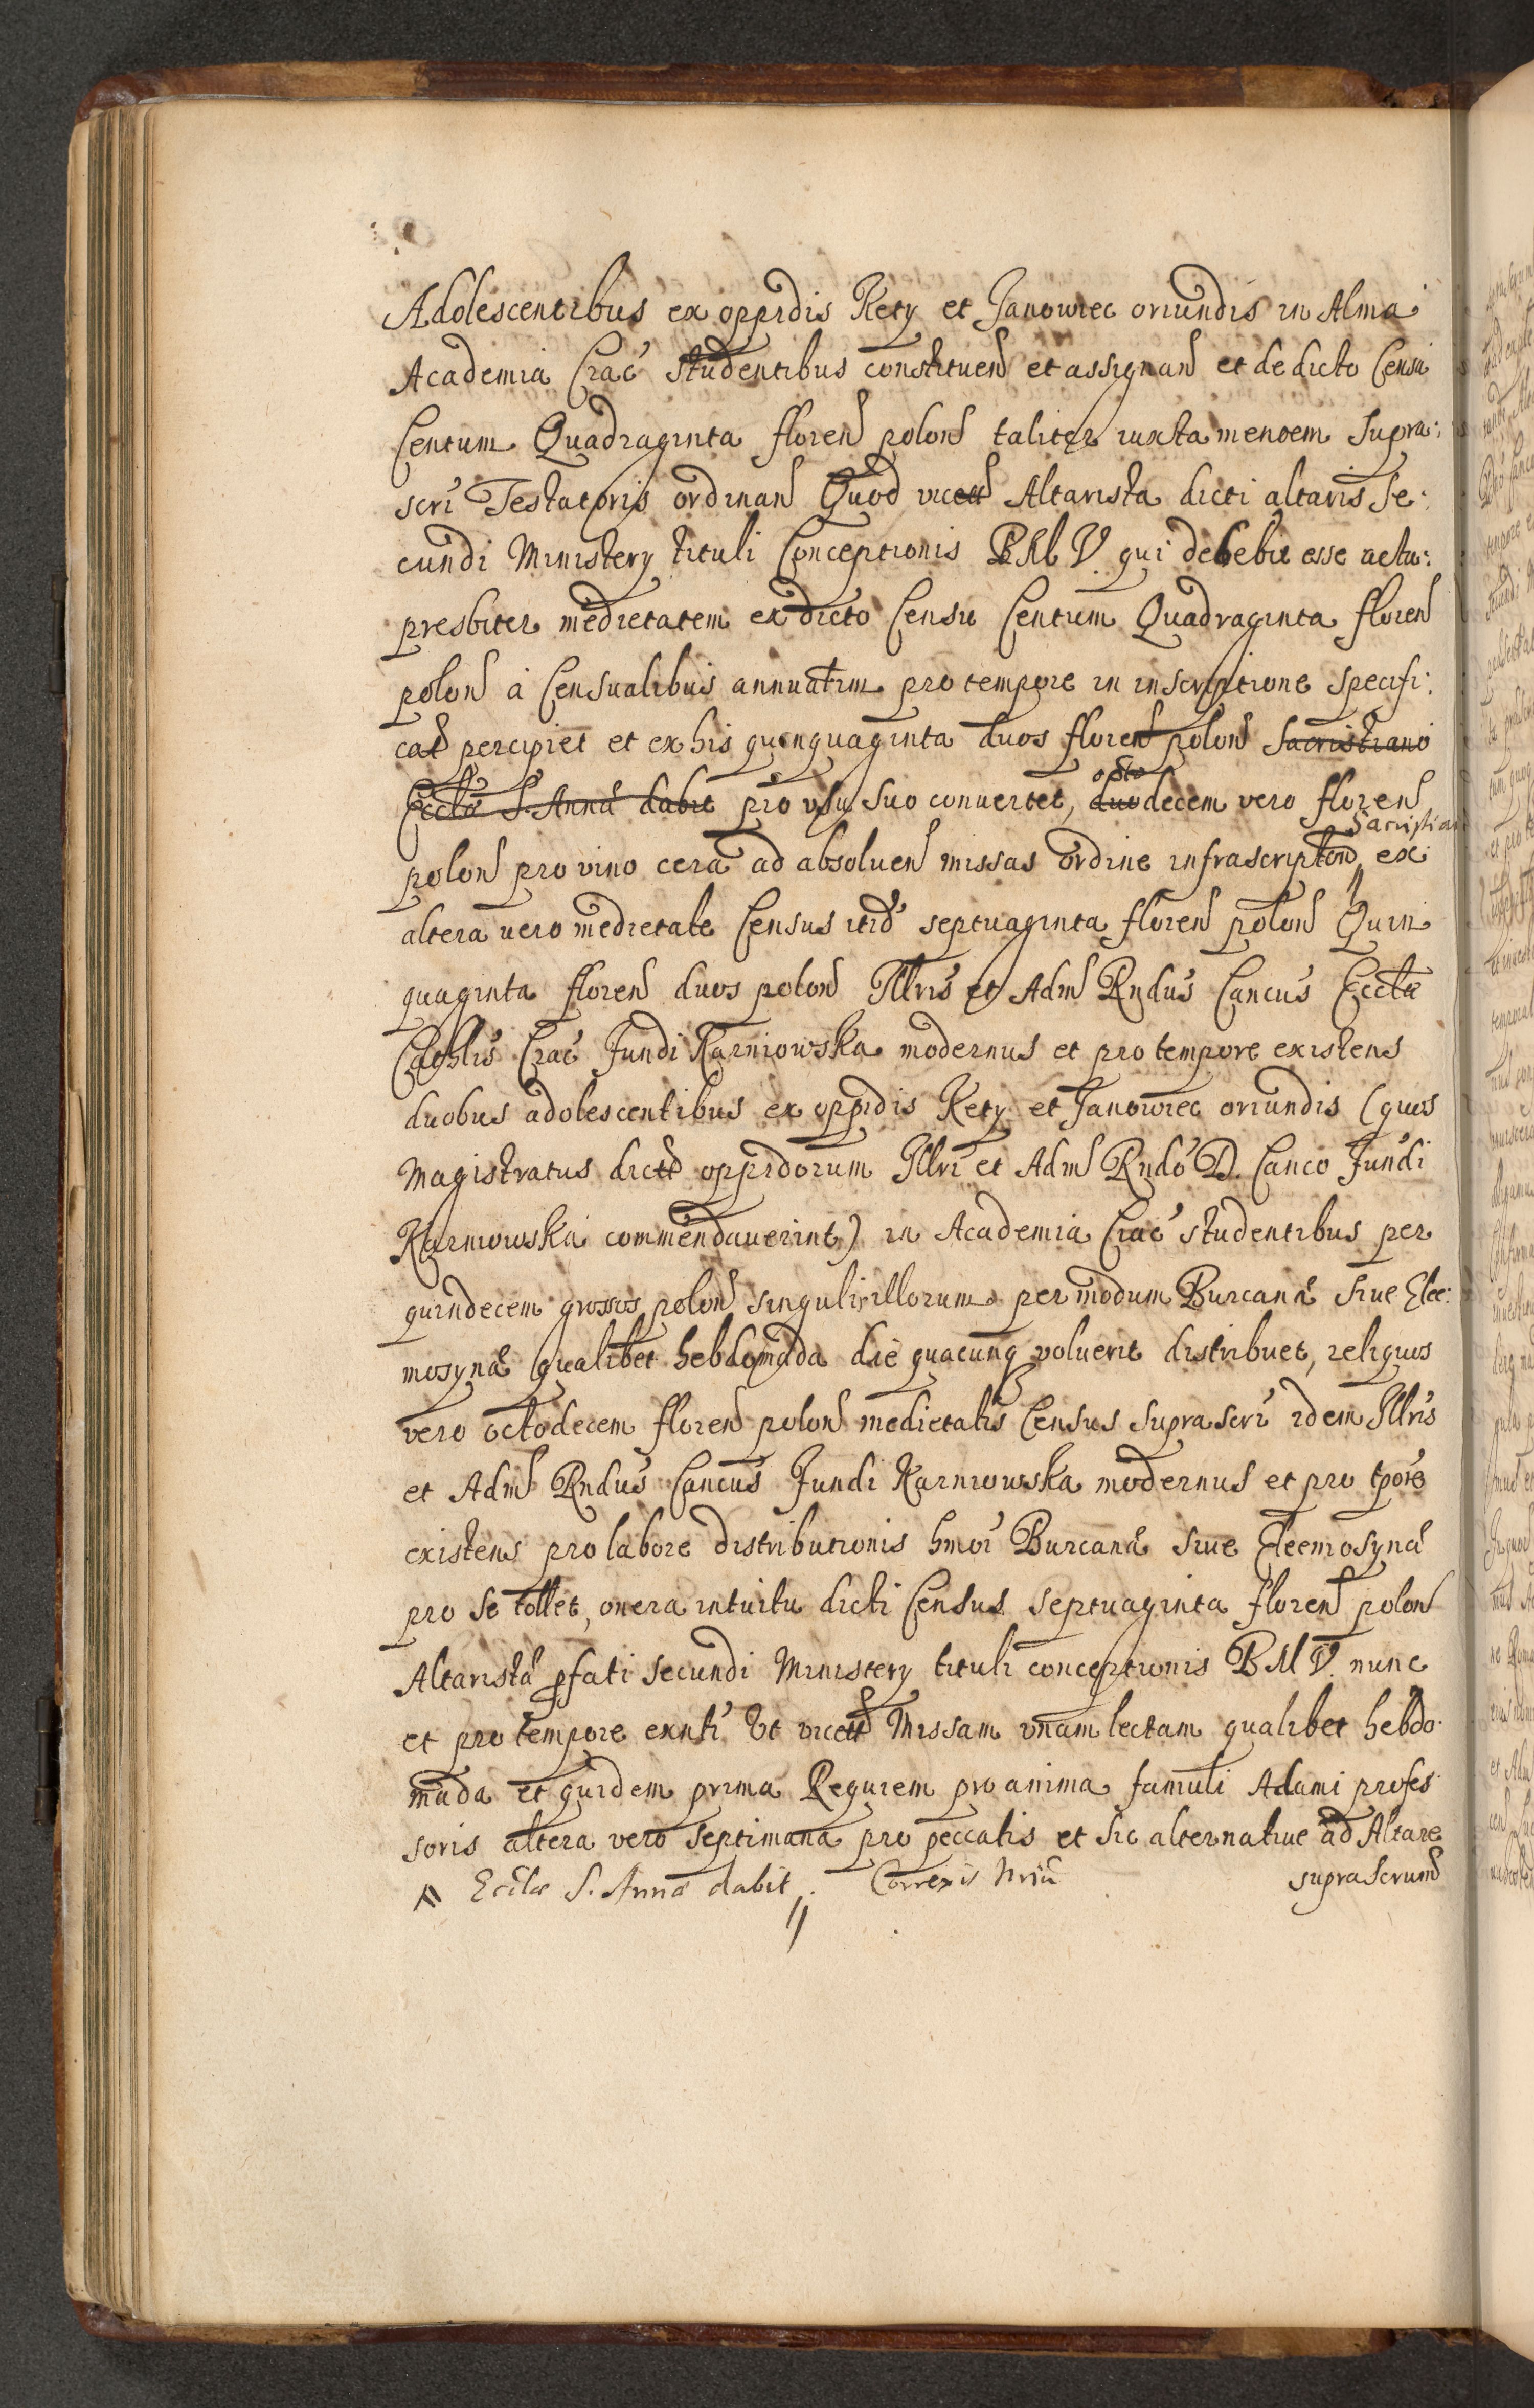 Adolescentibus ex oppidis Kety et Janowiec oriundis in Alma
Academia Crac̓ studentibus constituen̄ et assignan̄ et de dicto Censu
Centum Quadraginta floren̄ polon̄ taliter iuxta mentem supra:
scri Testatoris ordinan̄ Quod vicett Altarista dicti altaris se:
cundi Ministery tituli Conceptionis B.M.V. qui debebit esse actu:
presbiter medietatem ex dicto Censu Centum Quadraginta floren̄
polon̄ à Censualibus annuatim pro tempore in inscriptione specifi:
cat percipiet et ex his quinquaginta duos floren̄ polon̄ Sacristiano
Eccłæ S. Annæ dabit pro vsu suo conuertet, duodecem vero floren̄
octo
polon̄ pro vino cera ad absoluen̄ missas ordine infrascripton̄ ex
Sacristian
altera vero medietate Census itid̓ septuaginta floren̄ polon̄ Quin
quaginta floren̄ duos polon̄ Illris et Adm̄ Rndus Cancus Eccłæ
Cathlis Crac̓ Fundi Karniowska modernus et pro tempore existens
duobus adolescentibus ex oppidis Kety et Janowiec oriundis (quos
Magistratus dictt oppidorum Illri et Adm̄ Rndo D. Canco Fundi
Karniowska commendauerint) in Academia Crac̓ studentibus per
quindecem grossos polon̄ singuli illorum per modum Burcanæ siue Elee:
mosynæ qualibet hebdomada die quacunq voluerit distribuet, reliquos
vero octodecem floren̄ polon̄ medietatis Census suprascri idem Illris
et Adm̄ Rndus Cancus Fundi Karniowska modernus et pro tpore
existens pro labore distributionis hmoi Burcanæ siue Eleemosynæ
pro se tollet, onera intuitu dicti Census septuaginta floren̄ polon̄
Altaristæ pfati secundi Ministery tituli conceptionis B.M.V. nunc
et pro tempore exnti Vt vicett Missam vnam lectam qualibet hebdo:
mada et quidem prima Requiem pro anima famuli Adami profes
soris altera vero septimana pro peccatis et sic alternatiue ad Altare
Eccłæ S. Annæ dabit. Correxis
suprascrum̄